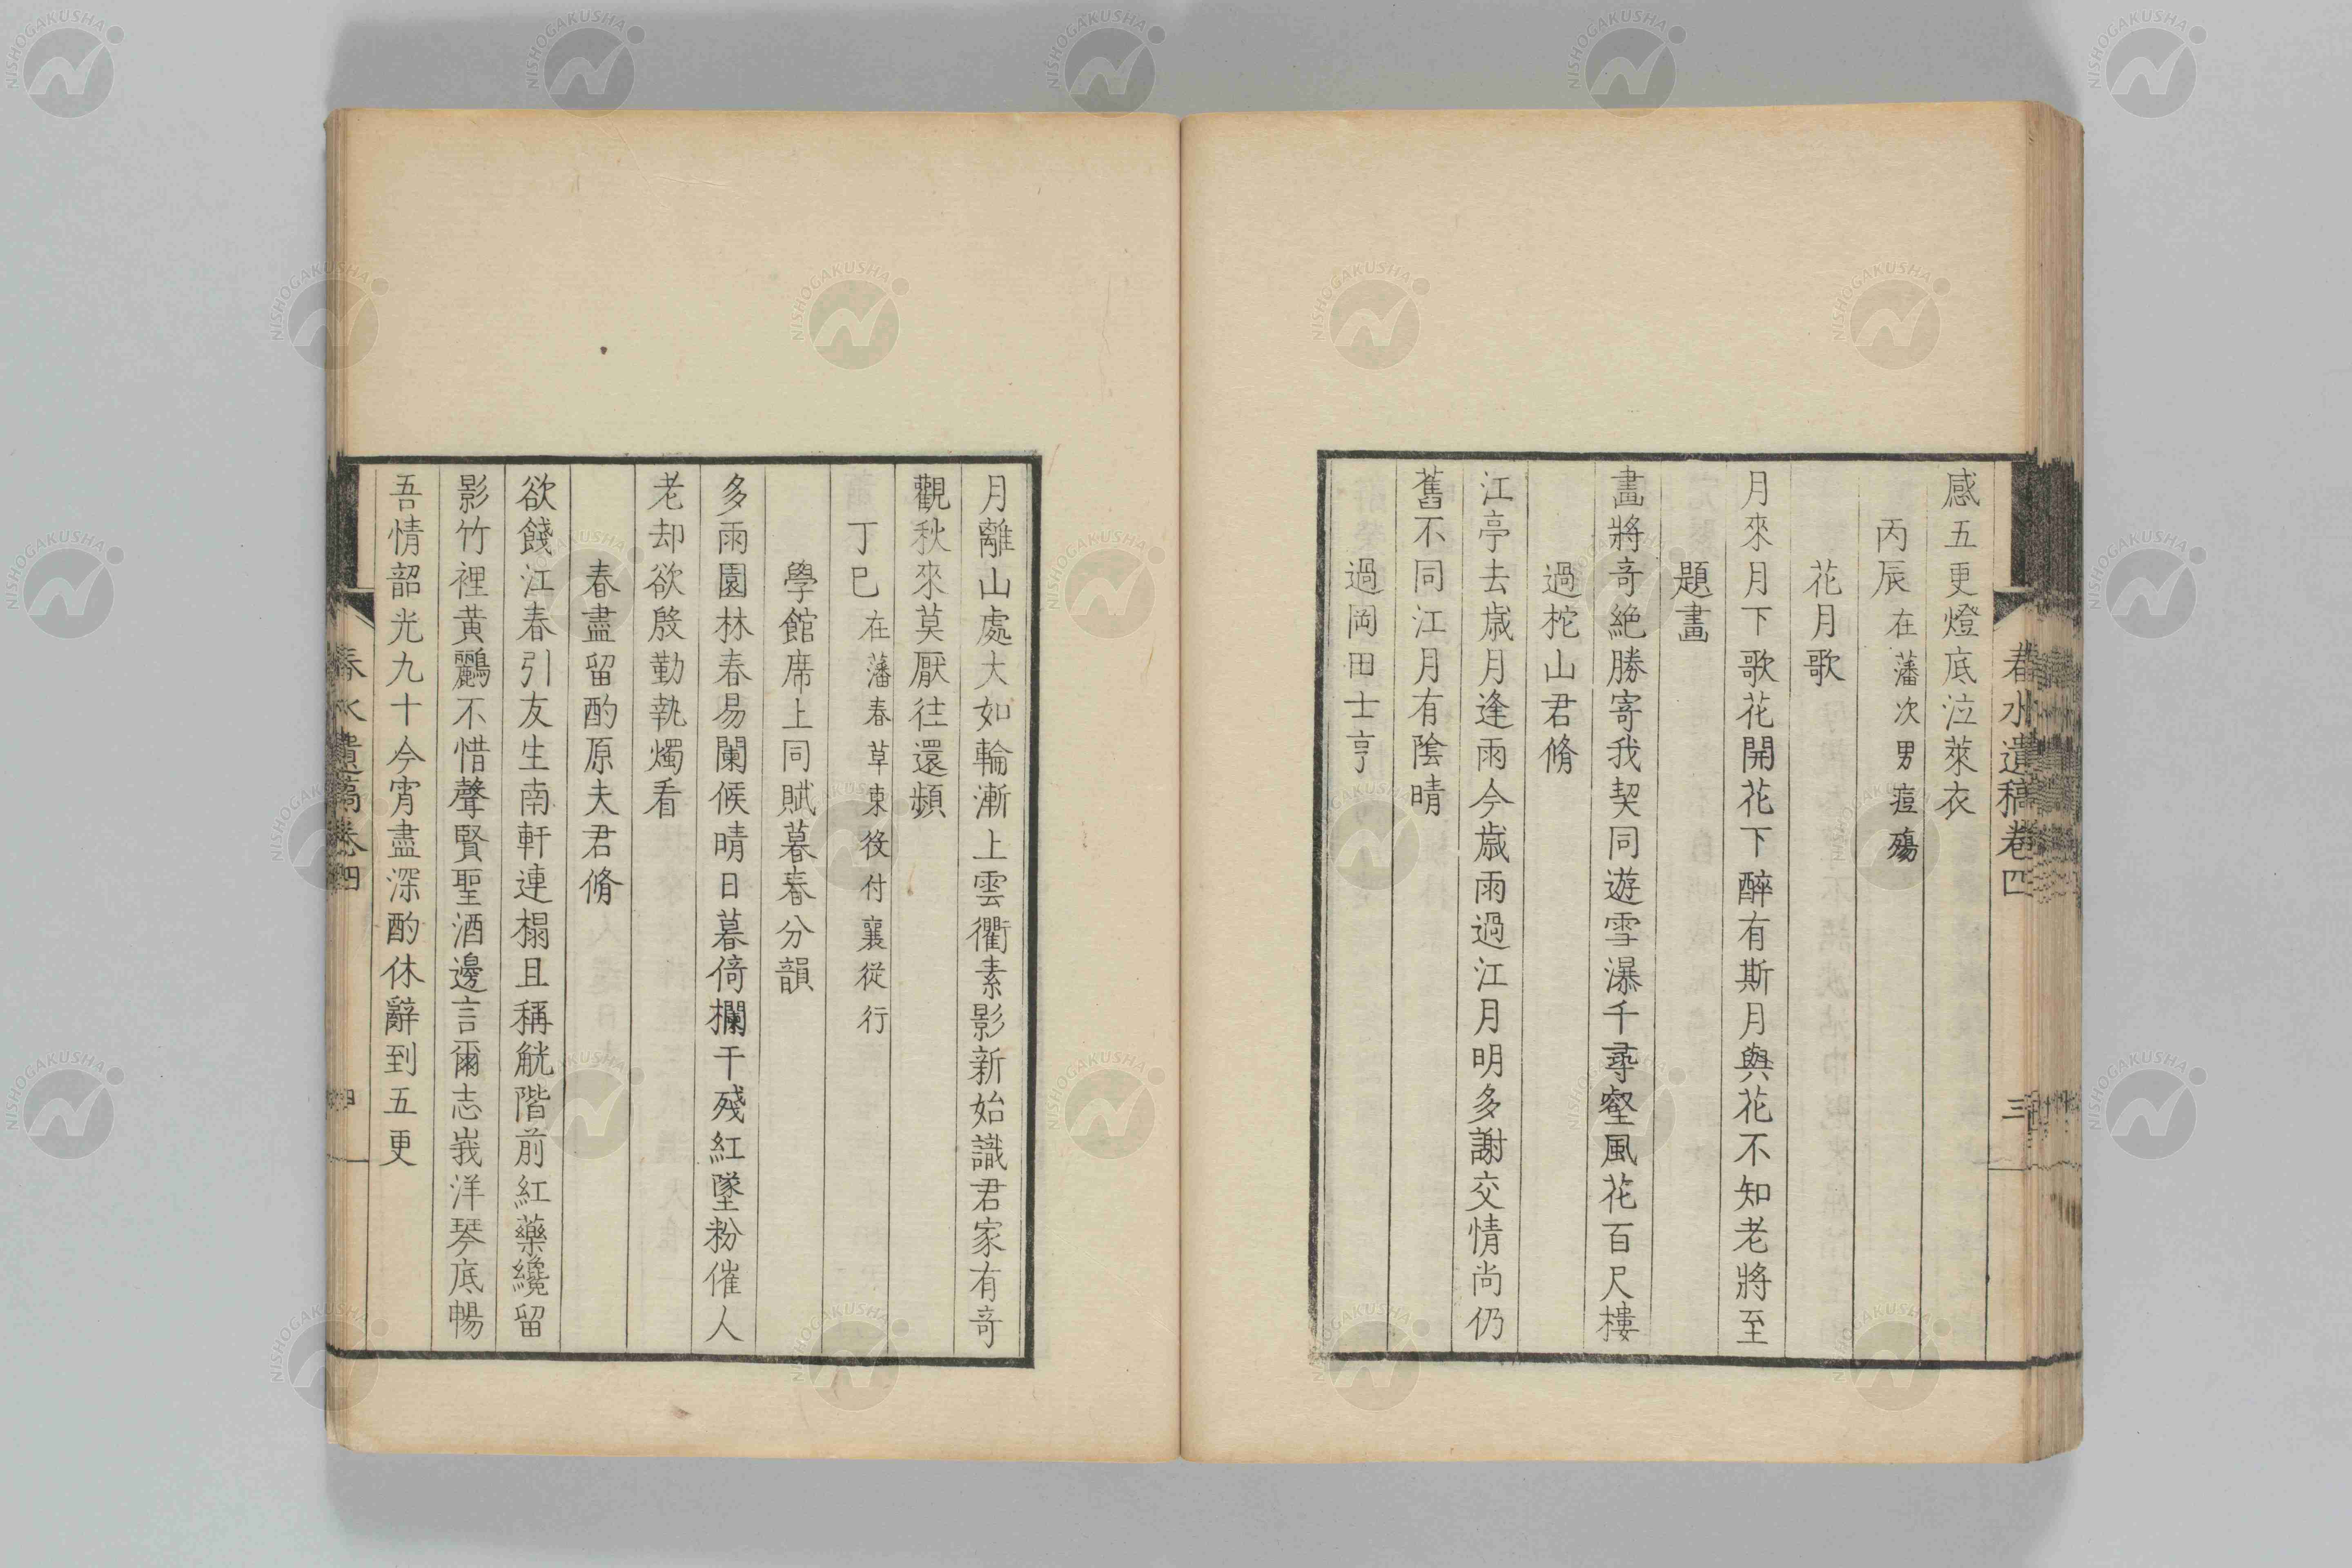 春水遺稿卷四
三
感五更燈底泣萊衣
丙辰在藩次男痘殤
花月歌
月來月下歌花開花下醉有斯月與花不知老將至
題畫
畫將奇絶勝寄我契同遊雪瀑千尋壑風花百尺樓
過柁山君脩
江亭去歳月逢雨今歳雨過江月明多謝交情尚仍
舊不同江月有陰晴
過岡田士亨
月離山處大如輪漸上雲衢素影新始識君家有奇
觀秋來莫厭往還頻
丁巳在藩春草東役付襄從行
學館席上同賦暮春分韻
多雨園林春易闌候晴日暮倚欄干殘紅墜粉催人
老却欲殷勤執燭看
春盡留酌原夫君脩
欲餞江春引友生南軒連榻且稱觥階前紅藥纔留
影竹裡黄鸝不惜聲賢聖酒邊言爾志峩洋琴底暢
吾情韶光九十今宵盡深酌休辭到五更
春水遺稿卷四
四
NISHOGAKUSHA